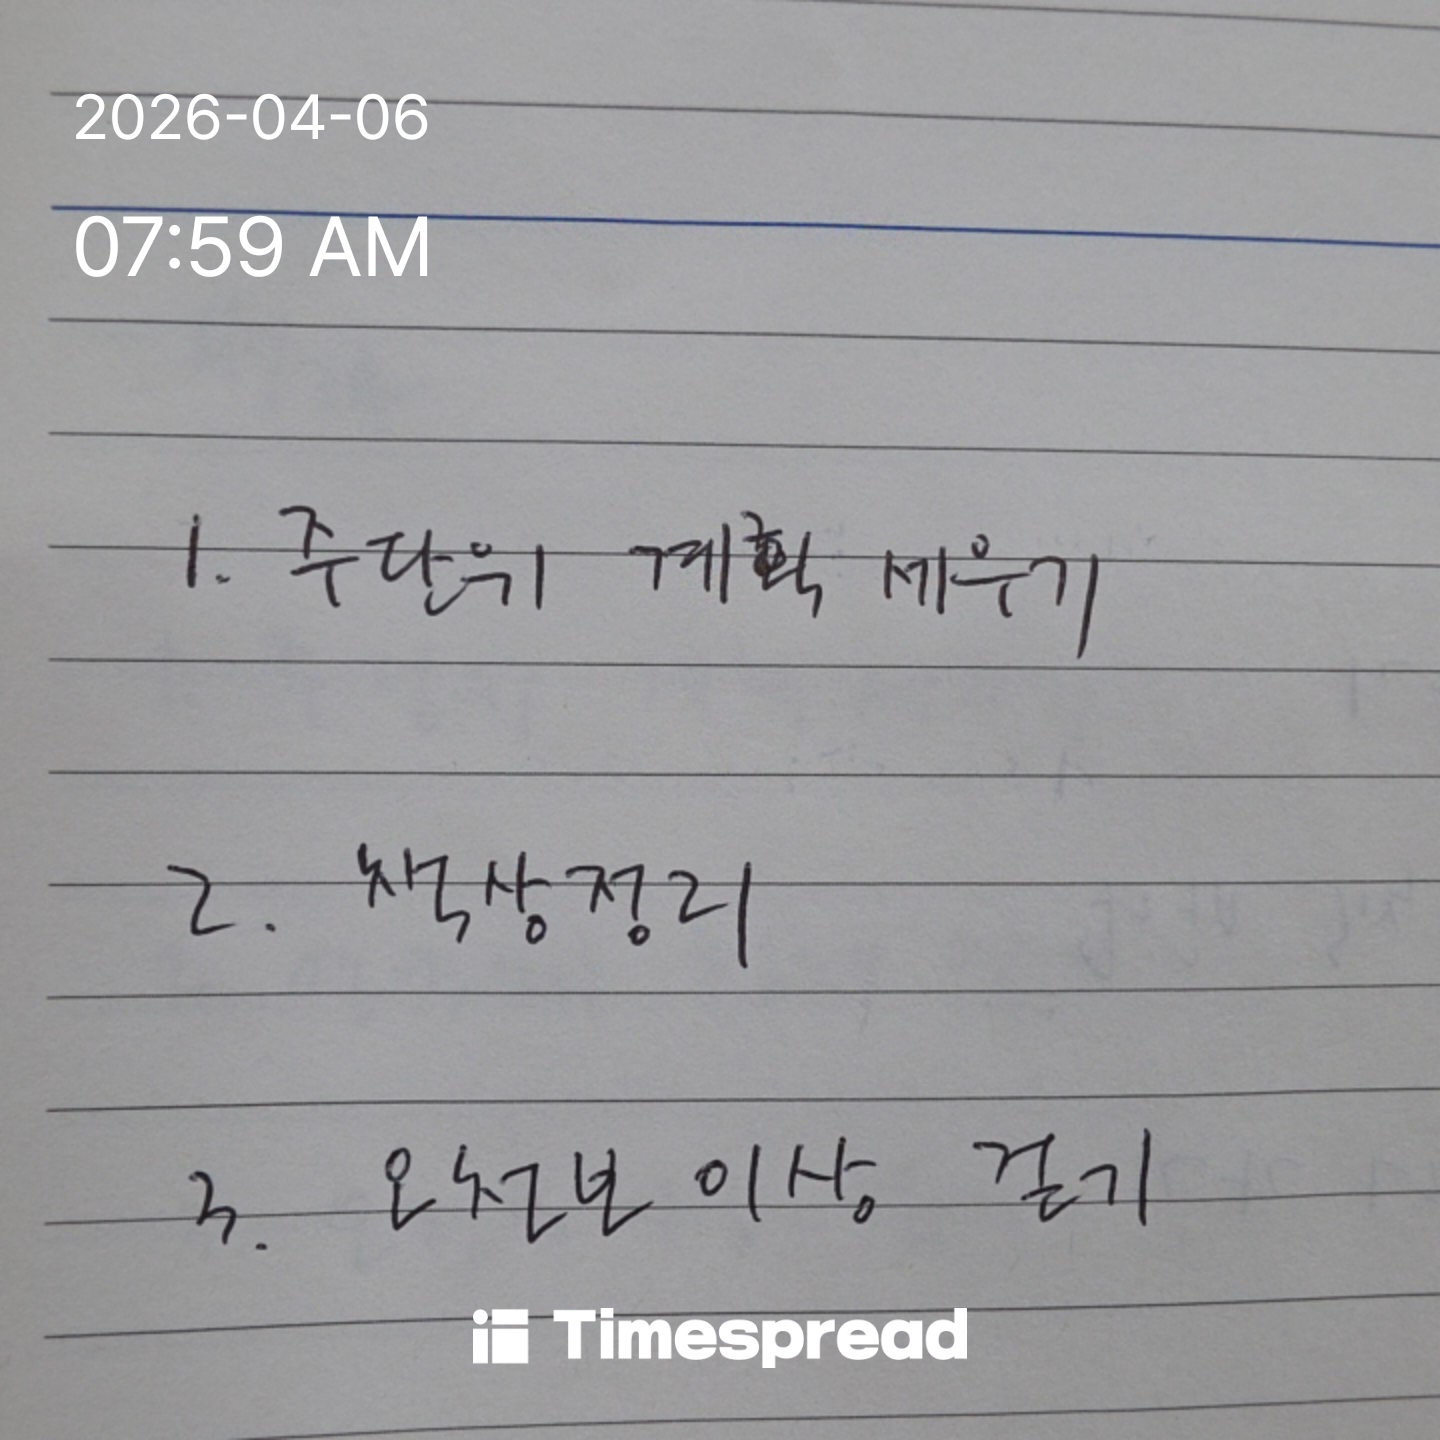 2026-04-06
07:59 AM
1. 주단위 계획 세우기
2. 책상정리
3. 오천보 이상 걷기
Timespread